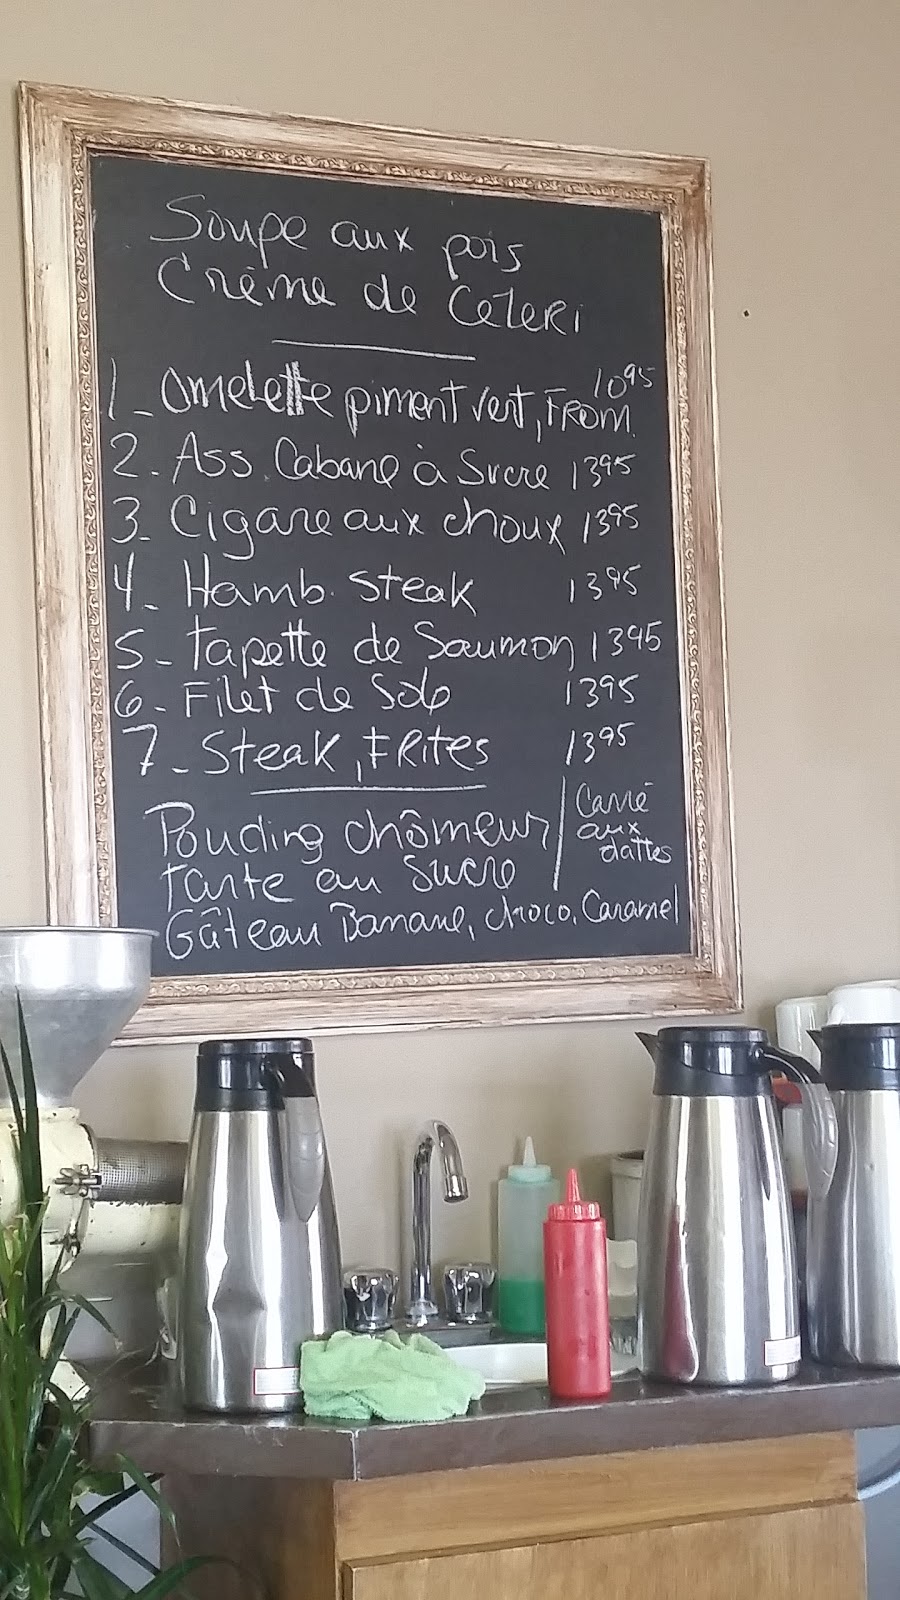 Soupe aux pois
Crème de Celeri
1 - Omelette piment vert, From. 10 95
2. Ass. Cabane à Sucre 13 95
3. Cigare aux choux 13 95
4 - Hamb. Steak 13 95
5 - Tapette de Saumon 13 95
6 - Filet de Sole 13 95
7 - Steak, Frites 13 95
Pouding chômeur / Carré
aux
dattes
Tarte au Sucre
Gâteau Banane, choco, Caramel